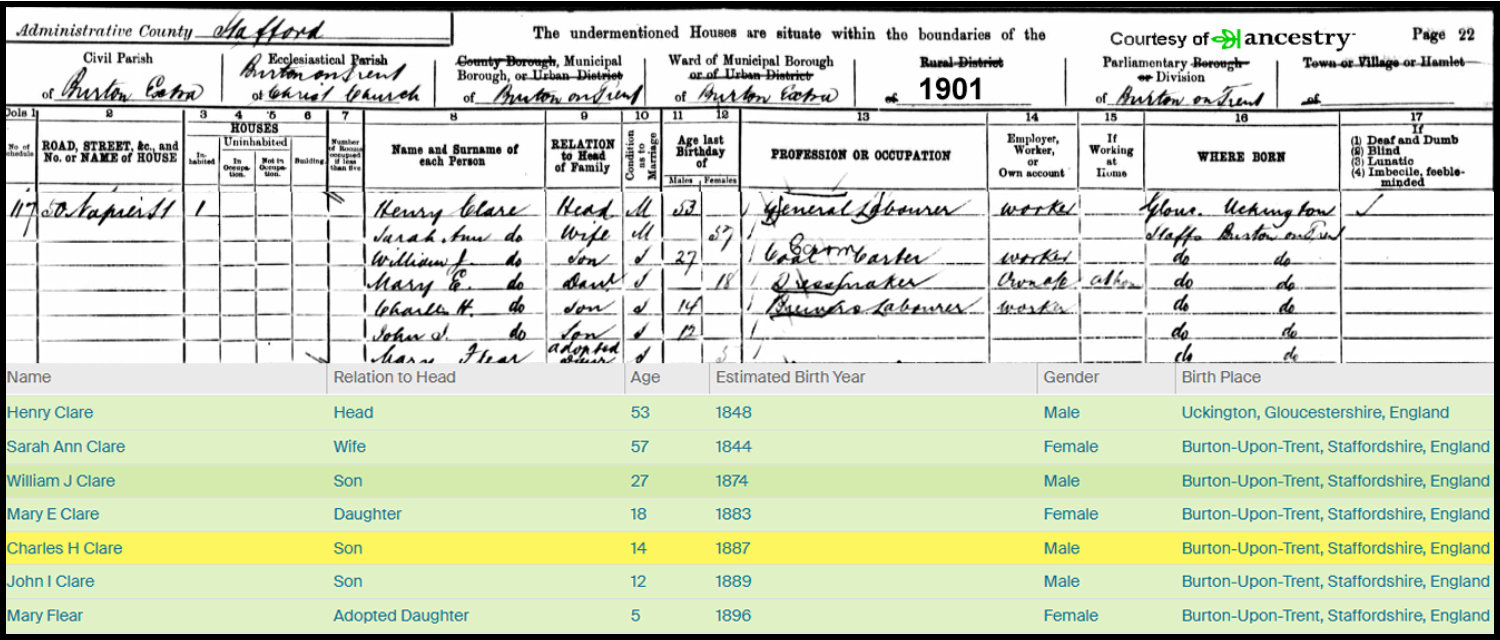 Administrative County Stafford The undermentioned Houses are situate within the boundaries of the Courtesy of ancestry Page 22
Civil Parish Ecclesiastical Parish County Borough, Municipal Ward of Municipal Borough Rural District Parliamentary Borough Town or Village or Hamlet
Burton on Trent Borough, or Urban District or of Urban District or Division
of Burton Extra of Christ Church of Burton on Trent of Burton Extra of 1901 of Burton on Trent of
2 3 4 5 6 7 8 9 10 11 12 13 14 15 16 17
No. of Schedule ROAD, STREET, &c., and No. or NAME of HOUSE HOUSES Inhabited Uninhabited In Occupation. Not in Occupation. Building. Number of Rooms occupied if less than five Name and Surname of each Person RELATION to Head of Family Condition as to Marriage Age last Birthday of Males Females PROFESSION OR OCCUPATION Employer, Worker, or Own account If Working at Home WHERE BORN If (1) Deaf and Dumb (2) Blind (3) Lunatic (4) Imbecile, feeble-minded
117 50 Napier St 1 Henry Clare Head M 53 General Labourer worker Glous. Uckington
Sarah Ann do Wife M 57 Staffs Burton on Trent
William J. do Son S 27 Coal Carter worker do do
Mary E. do Daur S 18 Dressmaker Own ac at home do do
Charles H. do Son S 14 Brewers Labourer worker do do
John I. do Son S 12 do do
Mary Flear adopted Daur S 5 do do
Name Relation to Head Age Estimated Birth Year Gender Birth Place
Henry Clare Head 53 1848 Male Uckington, Gloucestershire, England
Sarah Ann Clare Wife 57 1844 Female Burton-Upon-Trent, Staffordshire, England
William J Clare Son 27 1874 Male Burton-Upon-Trent, Staffordshire, England
Mary E Clare Daughter 18 1883 Female Burton-Upon-Trent, Staffordshire, England
Charles H Clare Son 14 1887 Male Burton-Upon-Trent, Staffordshire, England
John I Clare Son 12 1889 Male Burton-Upon-Trent, Staffordshire, England
Mary Flear Adopted Daughter 5 1896 Female Burton-Upon-Trent, Staffordshire, England